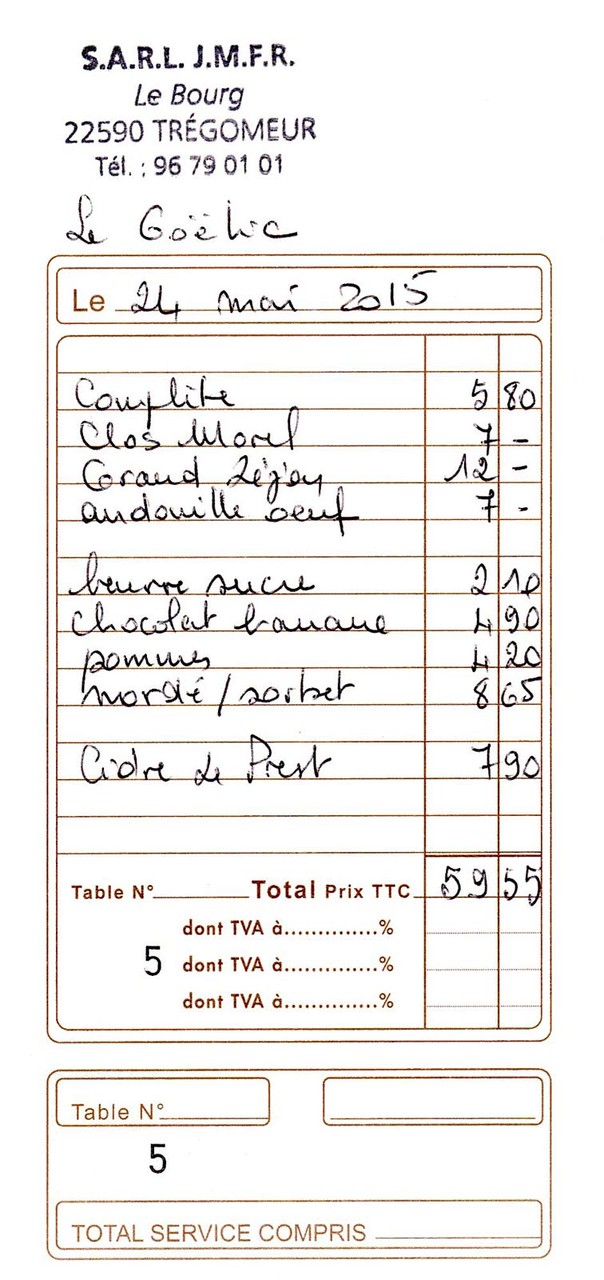 S.A.R.L. J.M.F.R.
Le Bourg
22590 TRÉGOMEUR
Tél. : 96 79 01 01
Le Goëlic
Le 24 mai 2015
Complète 5 80
Clos Morel 7 -
Grand Léjon 12 -
andouille oeuf 7 -
beurre sucre 2 10
chocolat banane 4 90
pommes 4 20
/ sorbet 8 65
Cidre de Prest 7 90
Table N° Total Prix TTC 59 55
dont TVA à..............%
5 dont TVA à..............%
dont TVA à..............%
Table N°
5
TOTAL SERVICE COMPRIS